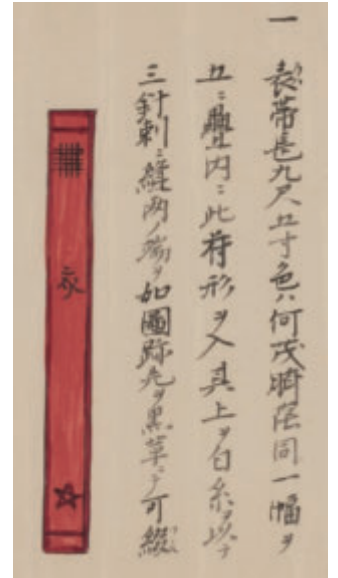 一 裂帯長九尺五寸色ハ何茂時節同一幅ヲ
五ニ疊内ニ此符形ヲ入真上ヲ白糸ヲ以テ
三針刺ニ縫両ノ端ヲ如圖跡先ヲ黒草ニテ可綴